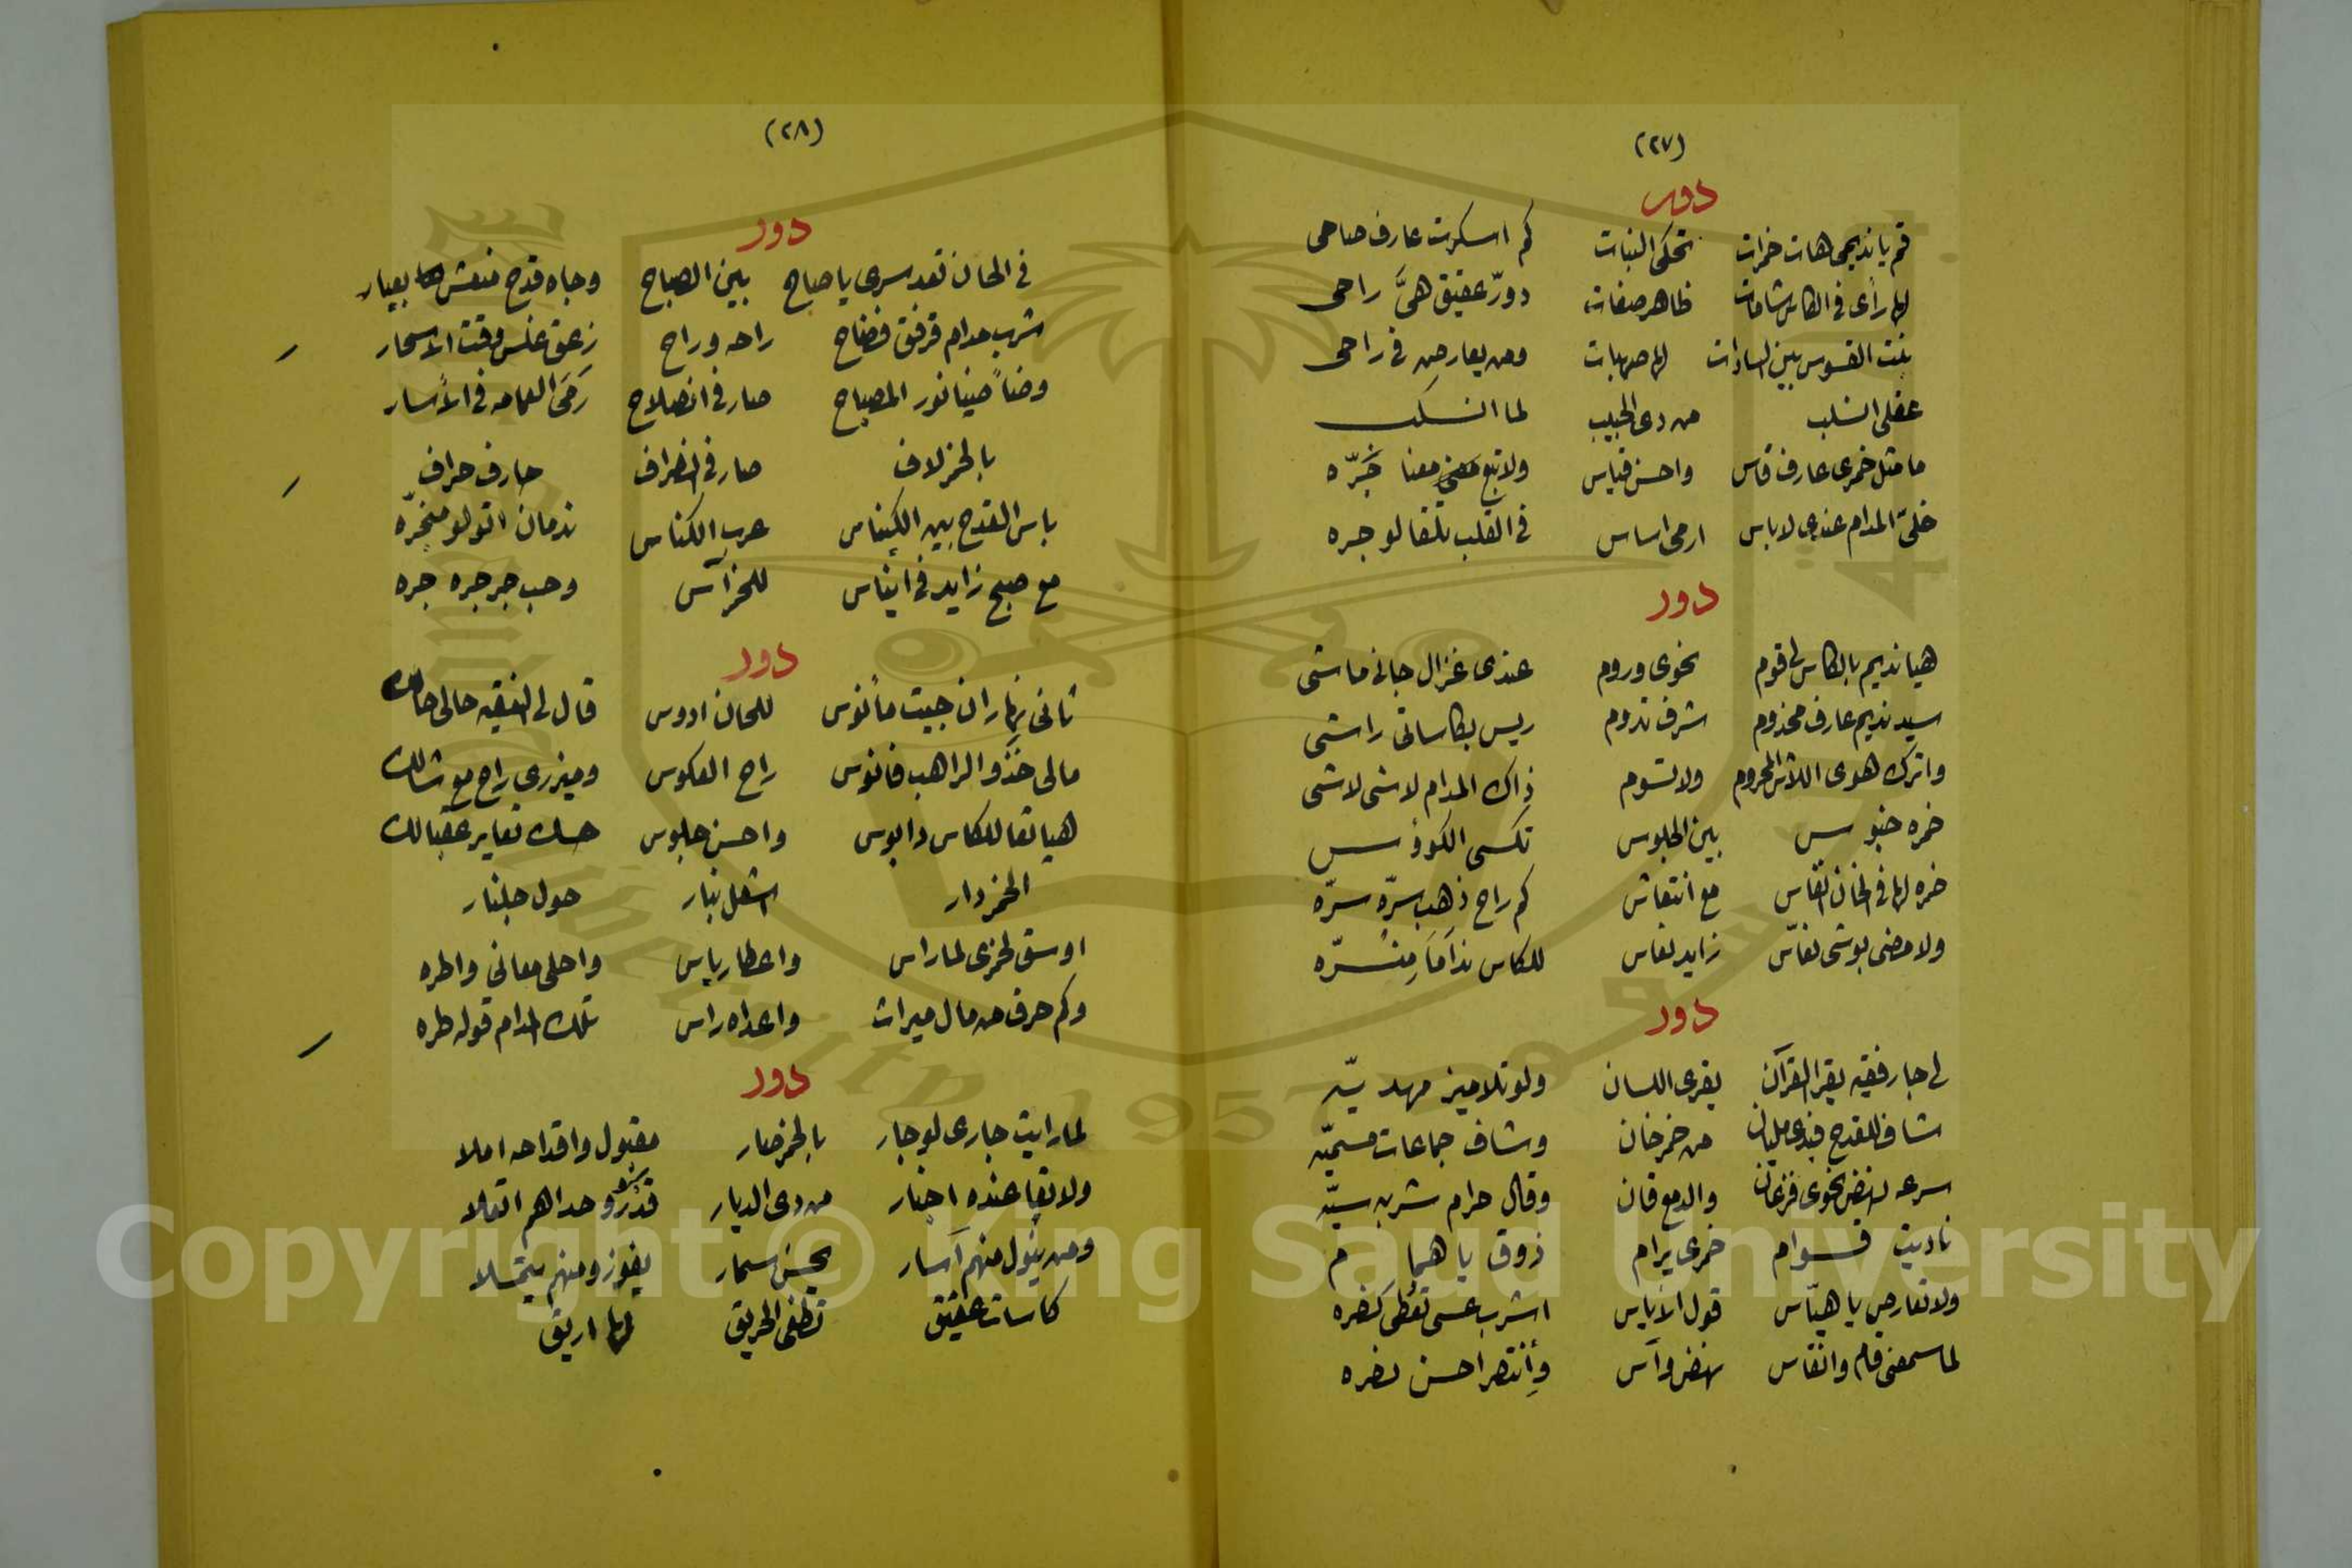 (٢٧)
دور
قم يا نديمى هات خمرات تحكى النبات كم اسكرت عارف صاحى
لها رأى فى الكاس شامات ظاهر صفات دورّ عقيق هىَّ راحى
بنت القسوس بين السادات لها صهبات ومن يعارض فى راحى
عقلى انسلب من دى الحبيب لما انسكب
ما مثل خمرى عارف قاس واحسن قياس ولا تبع معنا جَرّه
خلىّ المدام عندى لاباس ارمى اساس فى القلب تلقا لو جره
دور
هيا نديم بالكاس لى قوم نحوى وروم عندى غزال جانى ماشى
سيد نديم عارف مخدوم شرف ندوم ريس بكاساتى راشى
واترك هوى اللاش المحروم ولا تسوم ذاك المدام لاشى لاشى
خمره خبو س بين الجلوس تكسى الكوؤ س
خمره لها فى الخان انفاس مع انتعاش كم راح ذهب سرّه سرّه
ولا مضى بوشى نفاس زايد نفاس للكاس نداما مِنسرّه
دور
لى جار فقيه يقرا القرآن يقرى اللسان ولو تلاميز مهد يّه
شاف للقدح عندى مليان من خمر خان وشاف جماعات مسميّه
سرعه نهض نحوى فزعان والدمع قان وقال حرام شربه سيّه
ناديت قوام خمرى يرام ذوق يا هما م
ولا تعارض يا هيّاس قول الاياس اشرب عسى تعطى كضره
لما سمعنى قام وانقاس نهض وآس وأنتصر احسن نضره
(٢٨)
دور
فى الحان تقد سرى يا صباح بين الصباح وجاه قدح منعش بعيار
شرب مدام قرفق فضاح راحه وراح زعق غلس وقت الاسحار
وضأ ضيا نور المصباح صار فى انصلاح رَمَى العمامه فى الأسار
بالخمر لاف صار فى انضراف حارف حراف
باس القدح بين الكيناس عرب الكناس ندمان اتولو منجرّه
مع صبح زايد فى ايناس للخمرآس وحب جر جره جره
دور
تانى نهار ان جيت مأنوس للحان ادوس قال لى الفقيه حالى حالك
مالى خدو الراهب فانوس راح العكوس وميزرى راح مع شالك
هيا تعا للكاس دا بوس واحسن جلوس حسك تعاير عقبالك
الخمر دار اشعل بنار حول جلنار
اوسق لخمرى لما راس واعطار ياس واحلى معانى واطره
وكم حرف من مال ميراث واعداه راس تلك المدام قوله طره
دور
لما رايت جارى لو جار بالخمر صار مقبول واقداحه املا
ولا بقا عنده اخبار من دى الديار قدرو وحداهم اتعلا
ومن ينول منهم آسار يحسن سمار يفوز ومنهم يتملا
كاسات عقيق تطفى الحريق لها اريق
Copyright © King Saud University